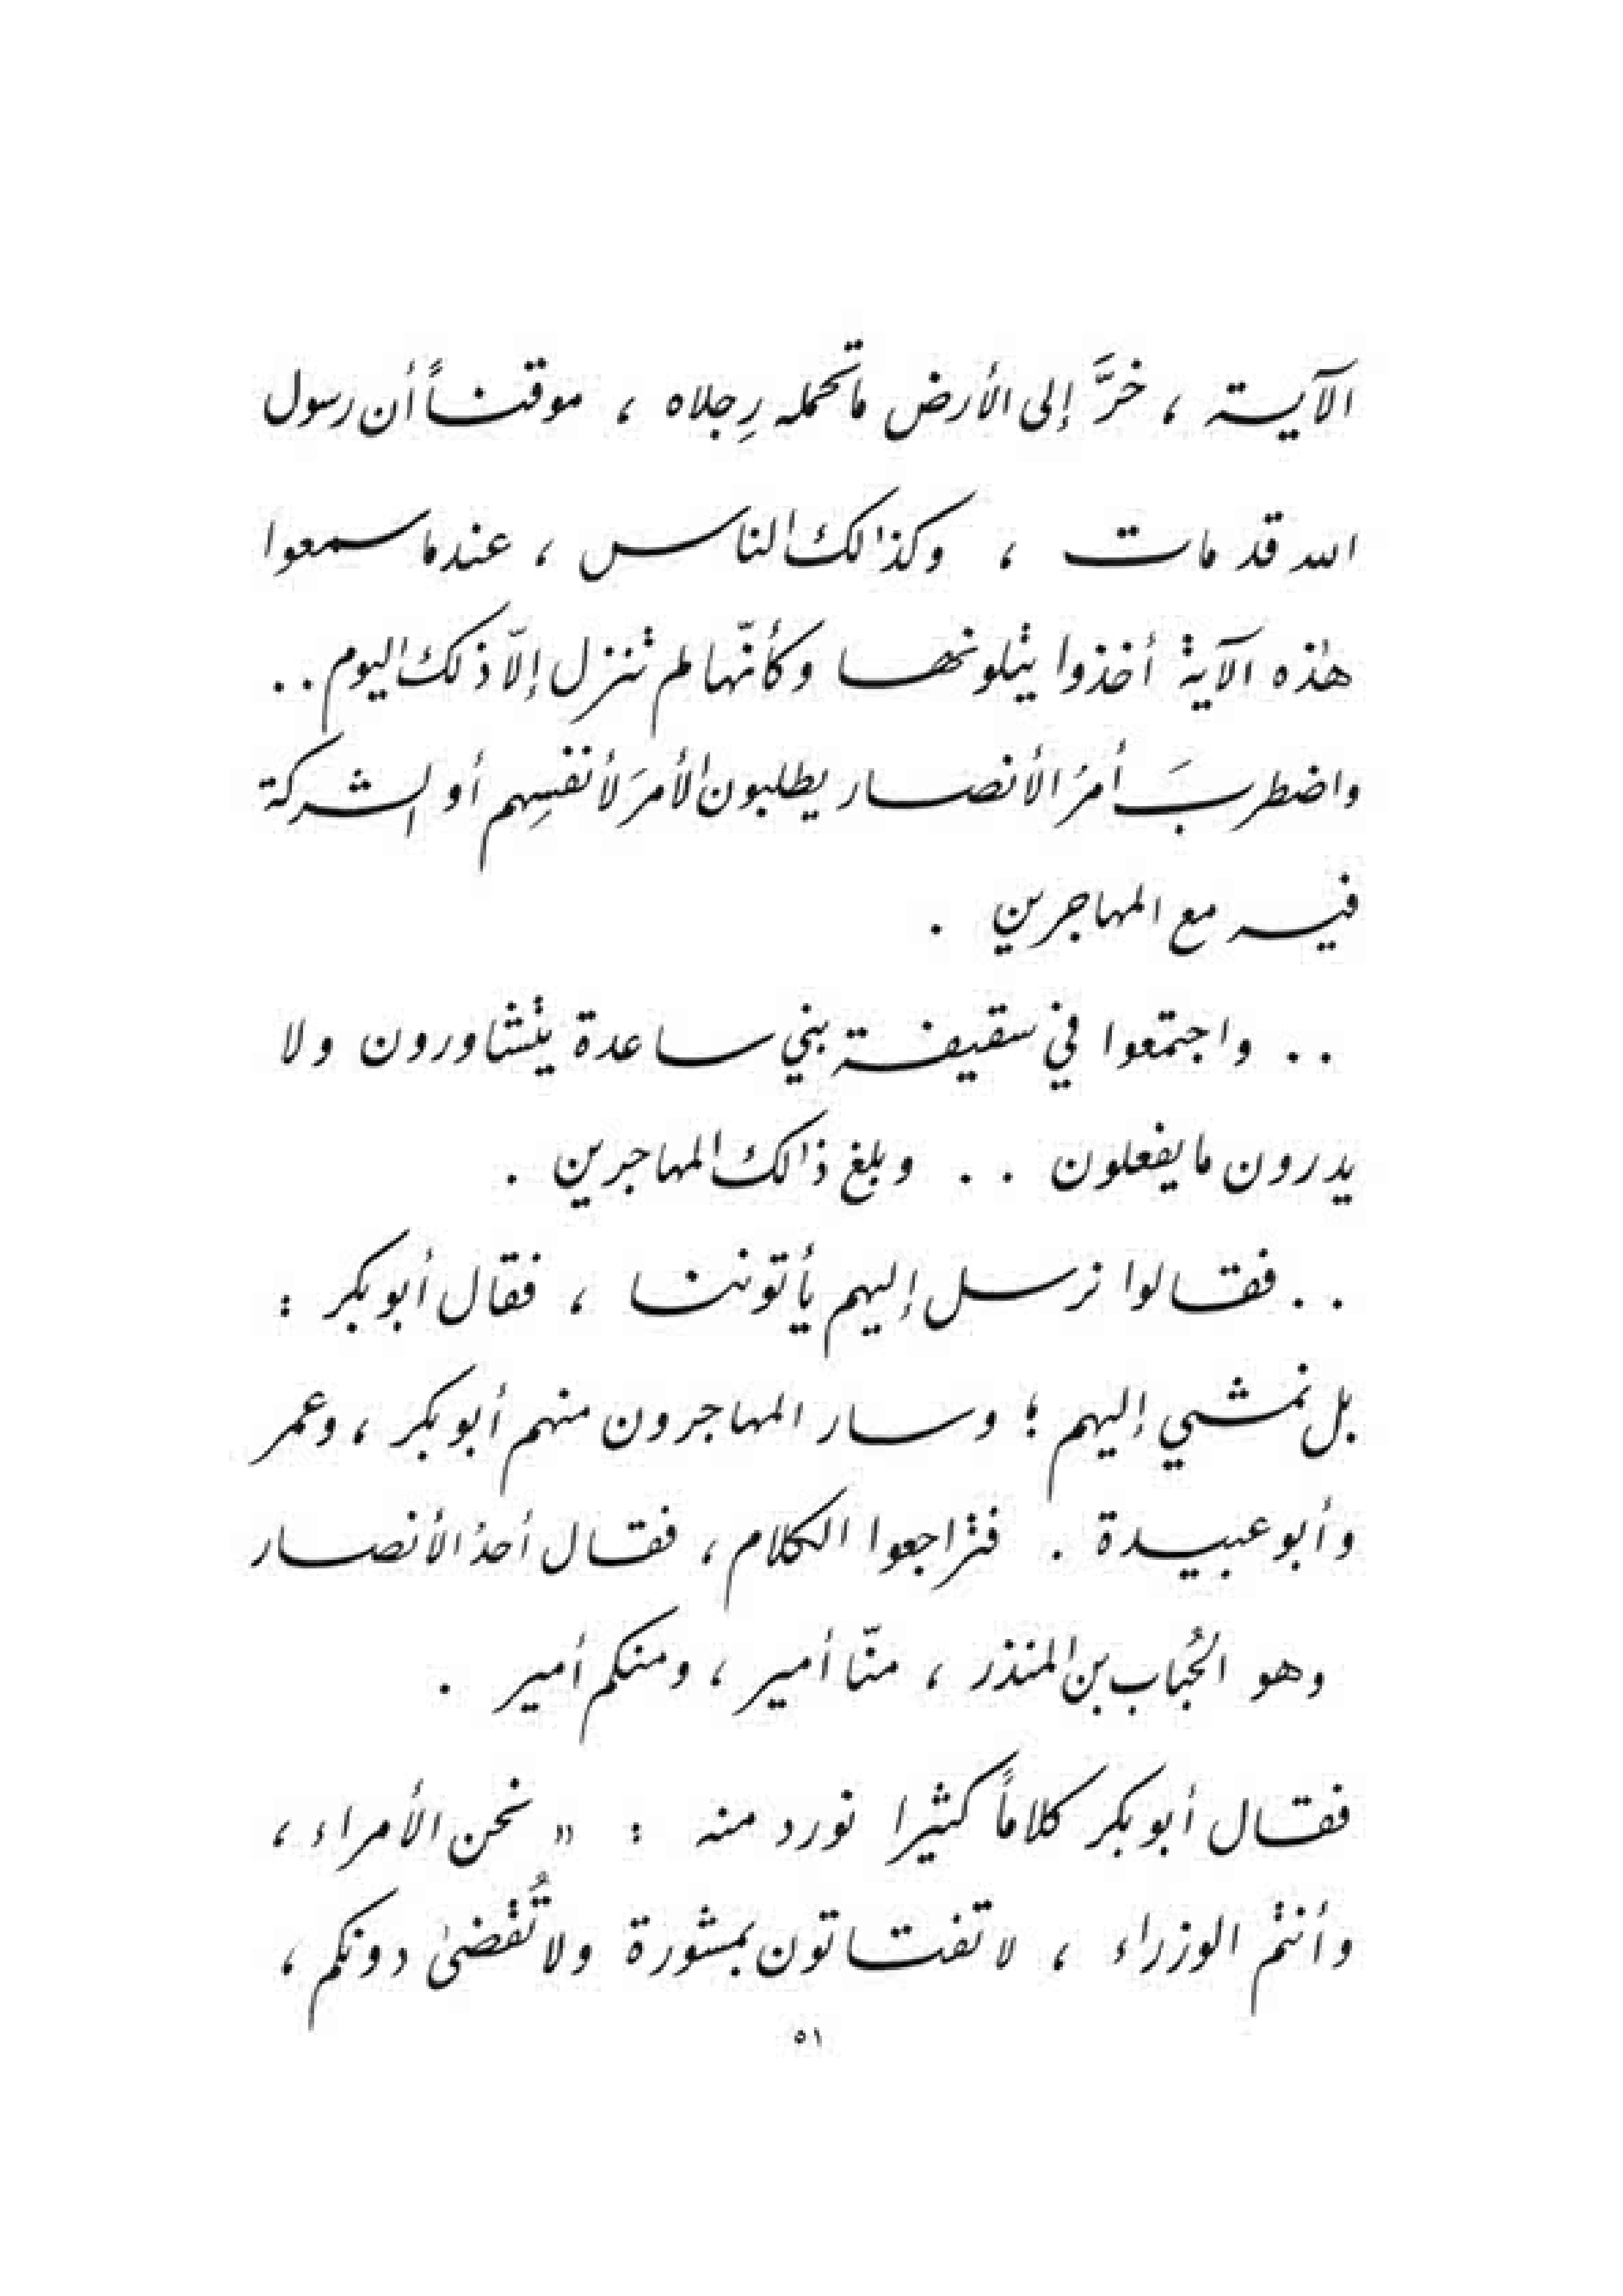 الآية ، خرَّ إلى الأرض ماتحمله رِجلاه ، موقناً أن رسول
الله قد مات ، وكذالك الناس ، عندما سمعوا
هذه الآية أخذوا يتلونها وكأنّها لم تنزل إلاّ ذلك اليوم . .
واضطربَ أمرُ الأنصار يطلبون الأمرَ لأنفسِهم أو الشركة
فيه مع المهاجرين .
. . واجتمعوا في سقيفة بني ساعدة يتشاورون ولا
يدرون ما يفعلون . . وبلغ ذالك المهاجرين .
. . فقالوا نرسل إليهم يأتوننا ، فقال أبو بكر :
بل نمشي إليهم ؛ وسار المهاجرون منهم أبو بكر ، وعمر
وأبو عبيدة . فتراجعوا الكلام ، فقال أحدُ الأنصار
وهو الحُباب بن المنذر ، منّا أمير ، ومنكم أمير .
فقال أبو بكر كلاماً كثيرا نورد منه : " نحن الأمراء ،
وأنتم الوزراء ، لا تفتاتون بمشورة ولا تُقضىٰ دونكم ،
٥١